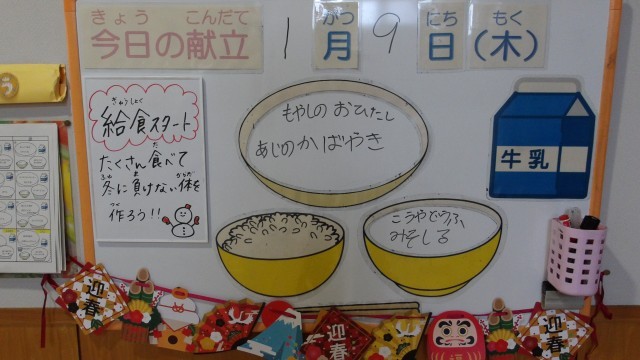 きょう こんだて
今日の献立
1
がつ
月
9
にち
日
もく
(木)
きゅうしょく
給食スタート
た
たくさん食べて
ふゆ ま からだ
冬に負けない体を
つく
作ろう!!
もやしの おひたし
あじのかばやき
こうやどうふ
みそしる
牛乳
迎春
迎春
迎春